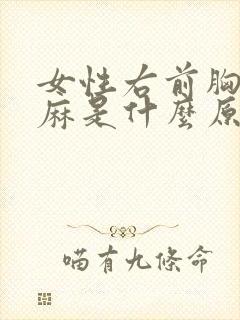 女性右前胸
麻是什麼原
喵有九條命